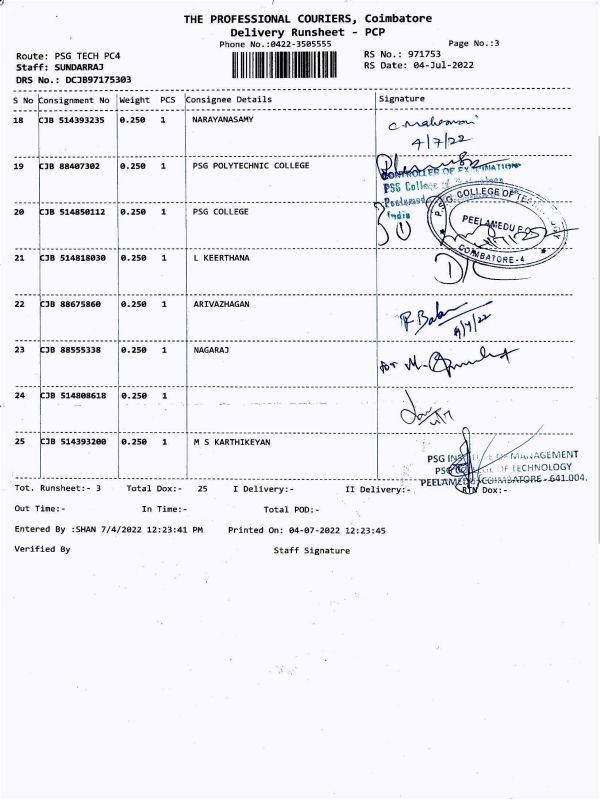 THE PROFESSIONAL COURIERS, Coimbatore
Delivery Runsheet - PCP
Phone No.:0422-3505555
Page No.:3
Route: PSG TECH PC4
RS No.: 971753
Staff: SUNDARRAJ
RS Date: 04-Jul-2022
DRS No.: DCJB97175303
S No Consignment No Weight PCS Consignee Details Signature
18 CJB 514393235 0.250 1 NARAYANASAMY
4/7/22
19 CJB 88407302 0.250 1 PSG POLYTECHNIC COLLEGE
CONTROLLER OF EXAMINATIONS
PSG College of Technology
Peelamedu
India
20 CJB 514850112 0.250 1 PSG COLLEGE
P.S.G. COLLEGE OF TECHNOLOGY
PEELAMEDU P.O.
COIMBATORE-4
21 CJB 514818030 0.250 1 L KEERTHANA
22 CJB 88675860 0.250 1 ARIVAZHAGAN
4/7/22
23 CJB 88555338 0.250 1 NAGARAJ
for
24 CJB 514808618 0.250 1
25 CJB 514393200 0.250 1 M S KARTHIKEYAN
PSG INSTITUTE OF MANAGEMENT
PSG COLLEGE OF TECHNOLOGY
PEELAMEDU, COIMBATORE - 641 004.
Tot. Runsheet:- 3 Total Dox:- 25 I Delivery:- II Delivery:- RTN Dox:-
Out Time:- In Time:- Total POD:-
Entered By :SHAN 7/4/2022 12:23:41 PM Printed On: 04-07-2022 12:23:45
Verified By Staff Signature